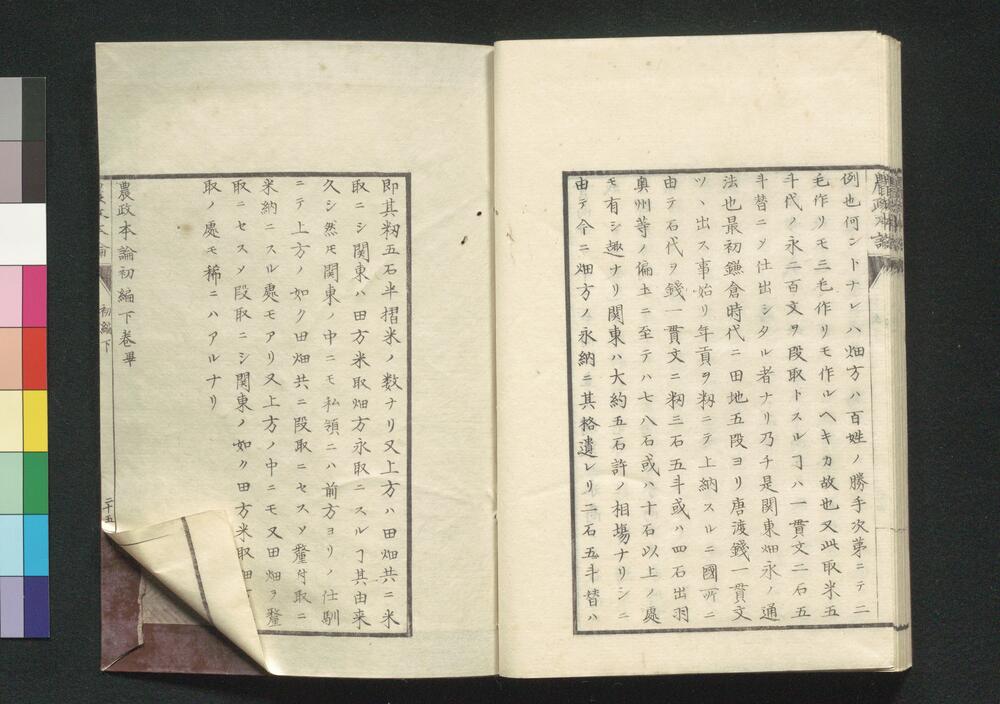 農政本論
例也何ントナレハ畑方ハ百姓ノ勝手次第ニテ二
毛作リモ三毛作リモ作ルヘキカ故也又此取米五
斗代ノ永二百文ヲ段取トスルヿハ一貫文二石五
斗替ニソ仕出シタル者ナリ乃チ是関東畑永ノ通
法也最初鎌倉時代ニ田地五段ヨリ唐渡錢一貫文
ツヽ出ス事始リ年貢ヲ籾ニテ上納スルニ國所ニ
由テ石代ヲ錢一貫文ニ籾三石五斗或ハ四石出羽
奥州等ノ偏土ニ至テハ七八石或ハ十石以上ノ處
モ有シ趣ナリ関東ハ大約五石許ノ相塲ナリシニ
由テ今ニ畑方ノ永納ニ其格遺レリ二石五斗替ハ
即其籾五石半摺米ノ数ナリ又上方ハ田畑共ニ米
取ニシ関東ハ田方米取畑方永取ニスルヿ其由来
久シ然モ関東ノ中ニモ私領ニハ前方ヨリノ仕馴
ニテ上方ノ如ク田畑共ニ段取ニセスソ釐付取ニ
米納ニスル處モアリ又上方ノ中ニモ又田畑ヲ釐
取ニセスソ段取ニシ関東ノ如ク田方米取畑
取ノ處モ稀ニハアルナリ
農政本論初編下卷畢
初編下
二十五